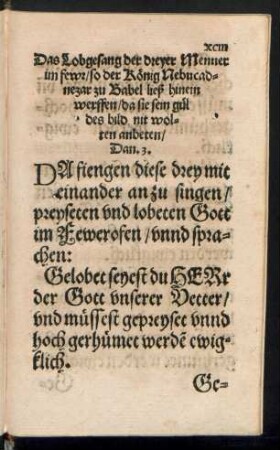 xciii
Das Lobgesang der dreyer Menner
im fewr/so der König Nebucad-
nezar zu Babel ließ hinein
werffen/da sie sein gůl
des bild nit wol-
ten anbeten/
Dan. 3.
DA fiengen diese drey mit
einander an zu singen/
preyseten vnd lobeten Gott
im Fewerofen/vnnd spra-
chen:
Gelobet seyest du HERr
der Gott vnserer Vetter/
vnd müssest gepreyset vnnd
hoch gerhümet werdē ewig-
klich.
Ge-